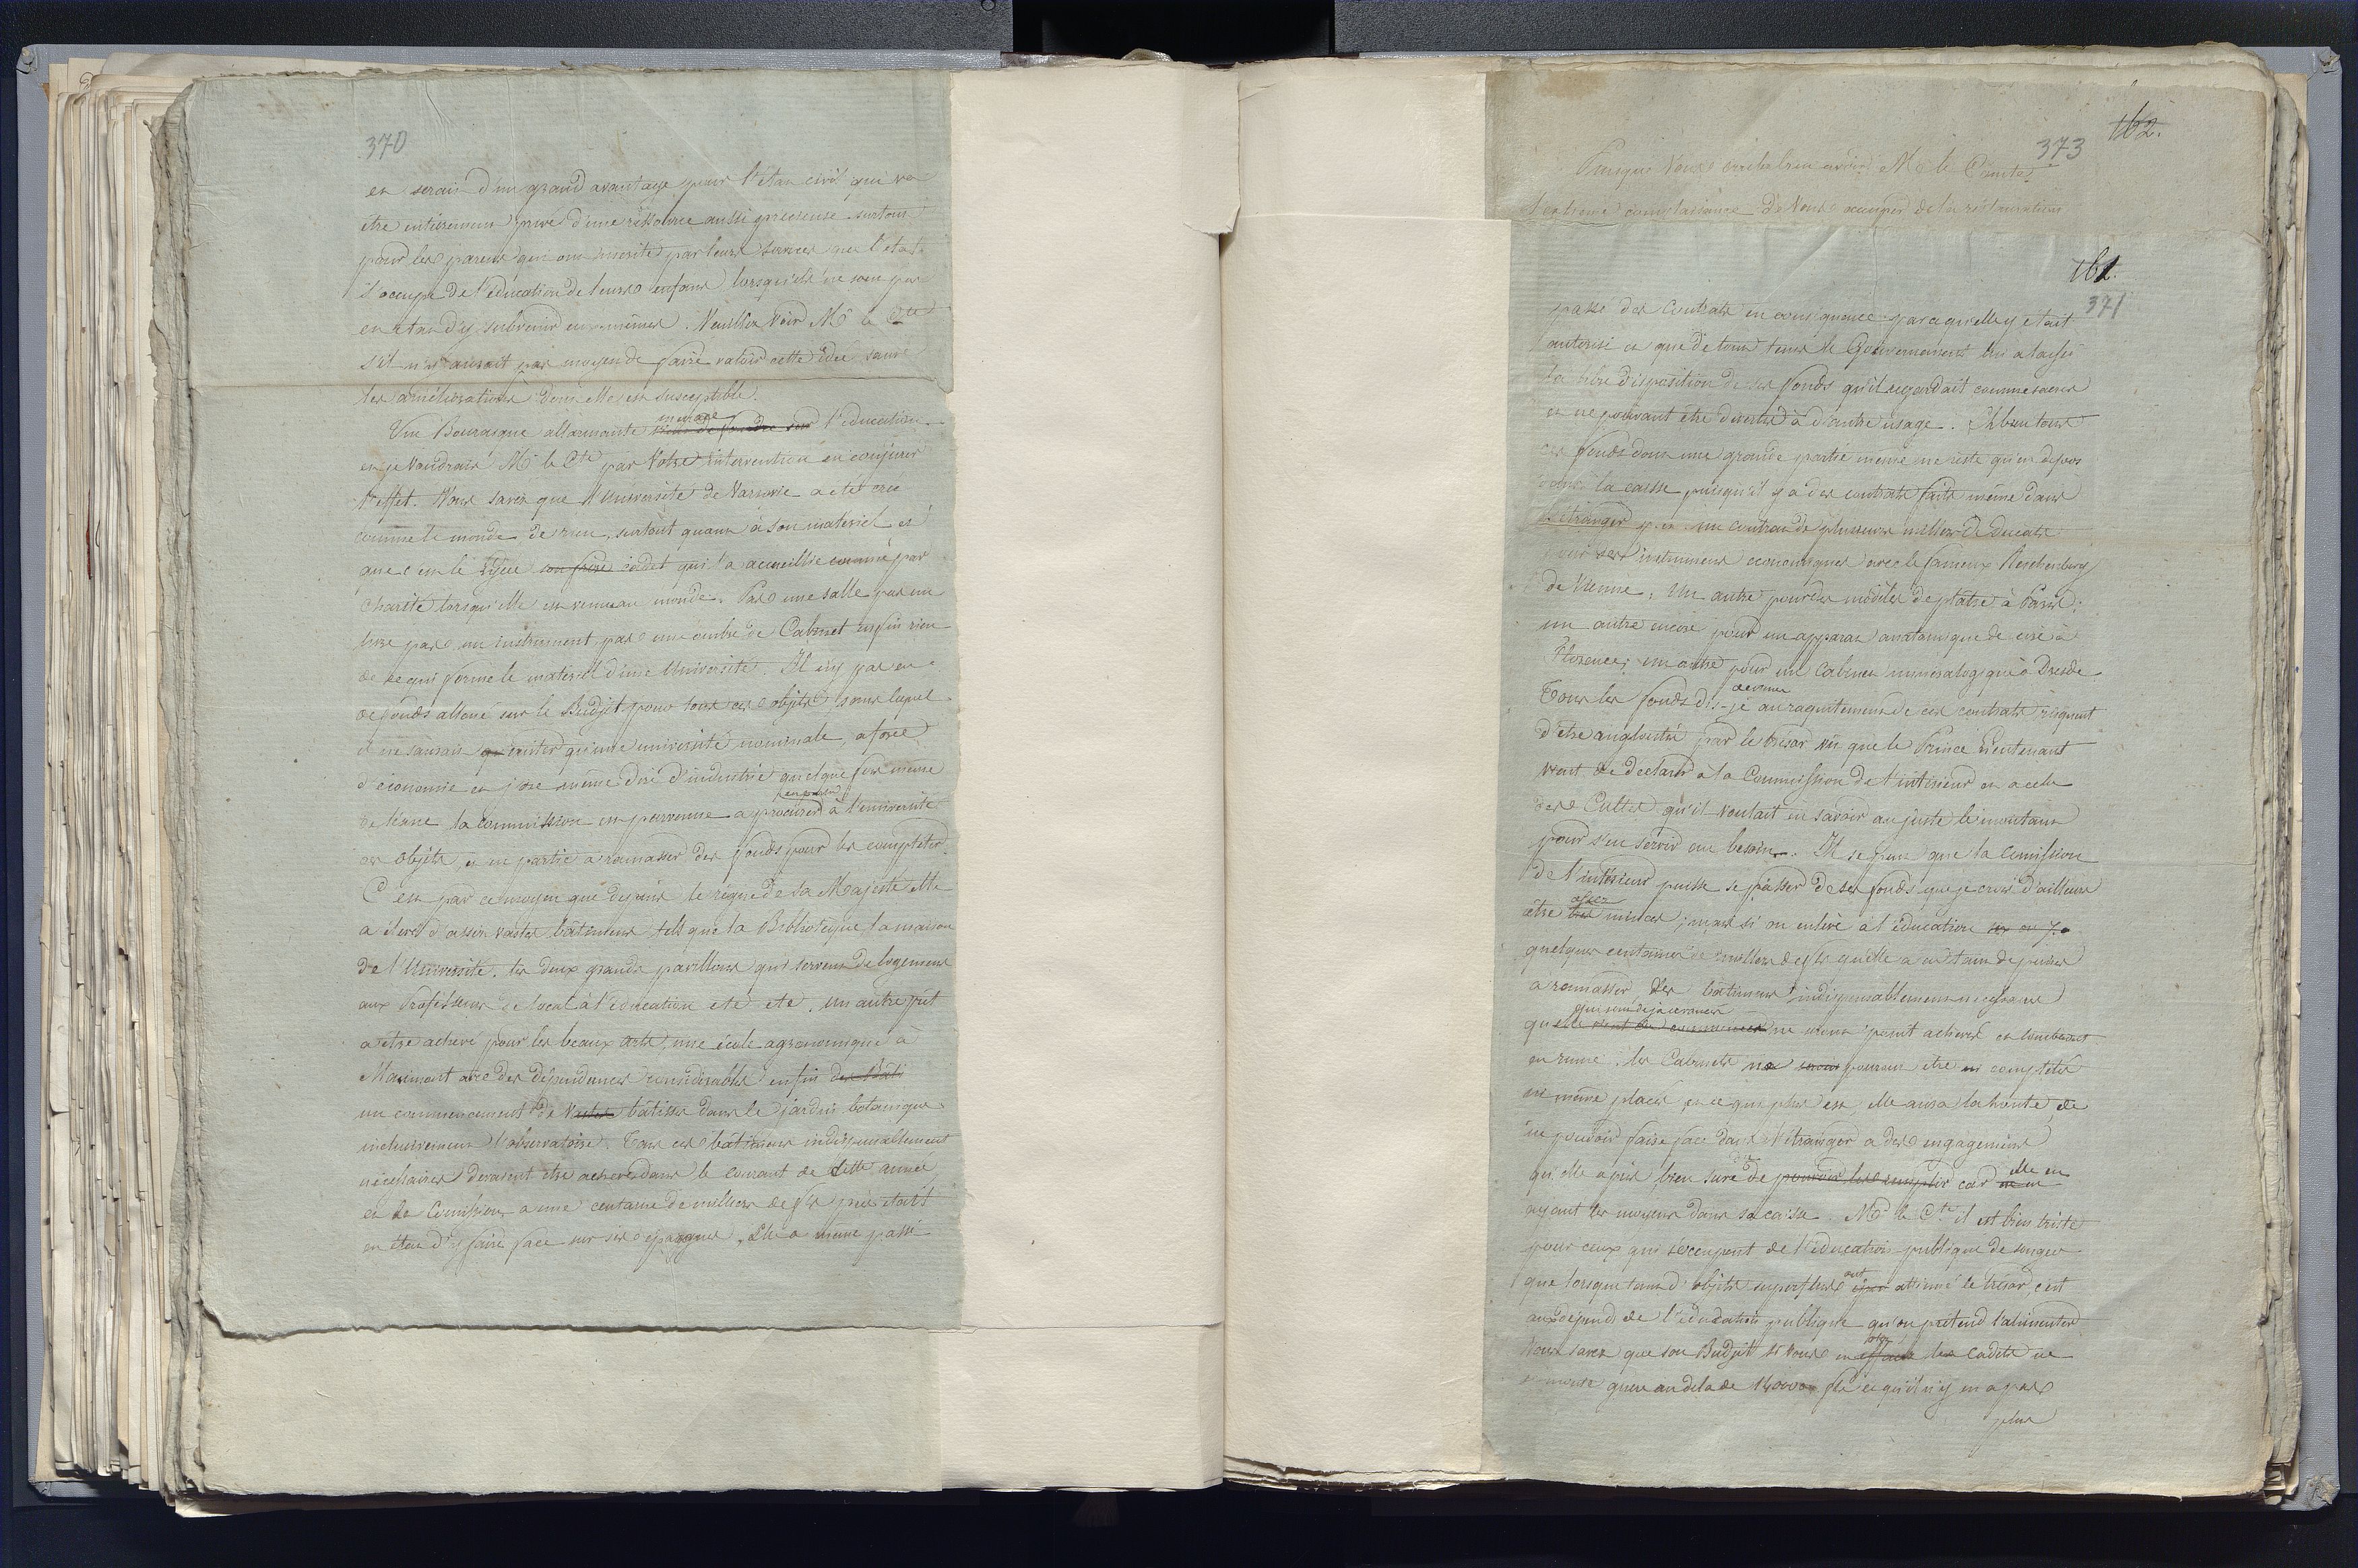 370
en serait d'un grand avantage pour l'etat civil qui va
être entierement privé d'une ressource aussi precieuse surtout
pour les parens qui ont merité par leurs services que l'etat
s'occupe de l'education de leurs enfans lorsqu'ils ne sont pas
en etat d'y subvenir eux-mêmes. Veuillez voir Mr le Cte
s'il n'y aurait pas moyen de faire valoir cette idée sauf
les améliorations dont elle est susceptible.
Une Bourasque allarmante menace vient de fondre sur l'education
et je voudrais Mr le Cte par Votre intervention en conjurer
l'effet. Vous savez que l'Université de Varsovie a eté créé
comme le monde de rien, surtout quant à son materiel et
que c'est le Lycée son frère cadet qui l'a accueillie comme par
charité lorsqu'elle est venue au monde. Pas une salle pas un
livre pas un instrument, pas une ombre de Cabinet enfin rien
de ce qui forme le materiel d'une Université. Il n'y pas eu
de fonds alloué sur le Budjet pour tous ces objets sans lequel
il ne saurait exister qu'une université nominale, a force
d'économie et j'ose même dire d'industrie quelque fois même
de lésine la commission est parvenue a procurer en partie à l'université
ces objets, et en partie a ramasser des fonds pour les completer.
C'est par ce moyen que depuis le règne de Sa Majesté elle
a élevé d'assez vastes bâtimens tels que la Bibliotèque la maison
de l'Université. les deux grands pavillons qui servent de logemens
aux Professeurs de local à l'education etc etc. un autre prêt
a etre achevé pour les beaux arts, une école agronomique à
Marimont avec des dépendances considerables enfin des bâti
un commencement de vastes bâtisse dans le jardin botanique
inclusivement l'observatoire. Tous ces bâtimens indispensablement
nécessaires devaient etre achevés dans le courant de cette année
et la Comission a une centaine de milliers de fls près etait
en état d'y faire face sur ses épargnes. Elle a même passé
162.
373
Puisque Vous voulez bien avoir Mr le Comte
l'extreme complaisance de Vous occuper de la restauration
161.
371
passé des Contrats en consequence parce qu'elle y etait
autorisé et que de tout tems le Gouvernement lui a laissé
la libre disposition de ses fonds qu'il regardait comme sacrés
et ne pouvant etre divertis à d'autre usage. Eh bien tous
ces fonds dont une grande partie même ne reste qu'en depos
dans la caisse puisqu'il y a des contrats faits même dans
l'étranger p. ex. un contrat de plusieurs milliers de ducats
pour les instrumens economiques avec le fameux Reichenberg
de Vienne, Un autre pour les modèles de platre à Paris;
un autre encore pour un apparat anatomique de cire à
Florence; un autre pour un Cabinet mineralogiqu à Dresde
Tous les fonds dis-je devenu au raquittement de ces contrats risquent
d'être angloutis par le trésor vu que le Prince Lieutenant
vient de declarer à la Commission de l'interieur et a celle
des Cultes qu'il voulait en savoir au juste le montant
pour s'en servir au besoin. Il se peut que la Comission
de l'intérieur puisse se passer de ses fonds que je crois d'ailleurs
être très assez minces; mais si on enlève à l'éducation
quelques centaines de milliers de fls qu'elle a eu tant de peine
a ramasser, des batimens indispensablement necessaires
qui sont déja elevés ne seront point achevés et tomberont
en ruine: les Cabinets ne seront pourront etre ni completés
ni même placés, et ce qui plus est, elle aura la honte de
ne pouvoir faire face dans l'étranger a des engagemens
qu'elle a pris, bien sure de pouvoir les remplir car elle en
ayant les moyens dans sa caisse. Mr le Cte il est bien triste
pour ceux qui s'occupent de l'éducation publique de songer
que lorsque tant d'objets superflus ont attenué le trésor, c'est
aux dépends de l'éducation publique qu'on prétend l'alimenter
Vous savez que son Budjet si Vous en les Cadets ne
se monte guere au dela de fls et qu'il n'y en a pas
plus